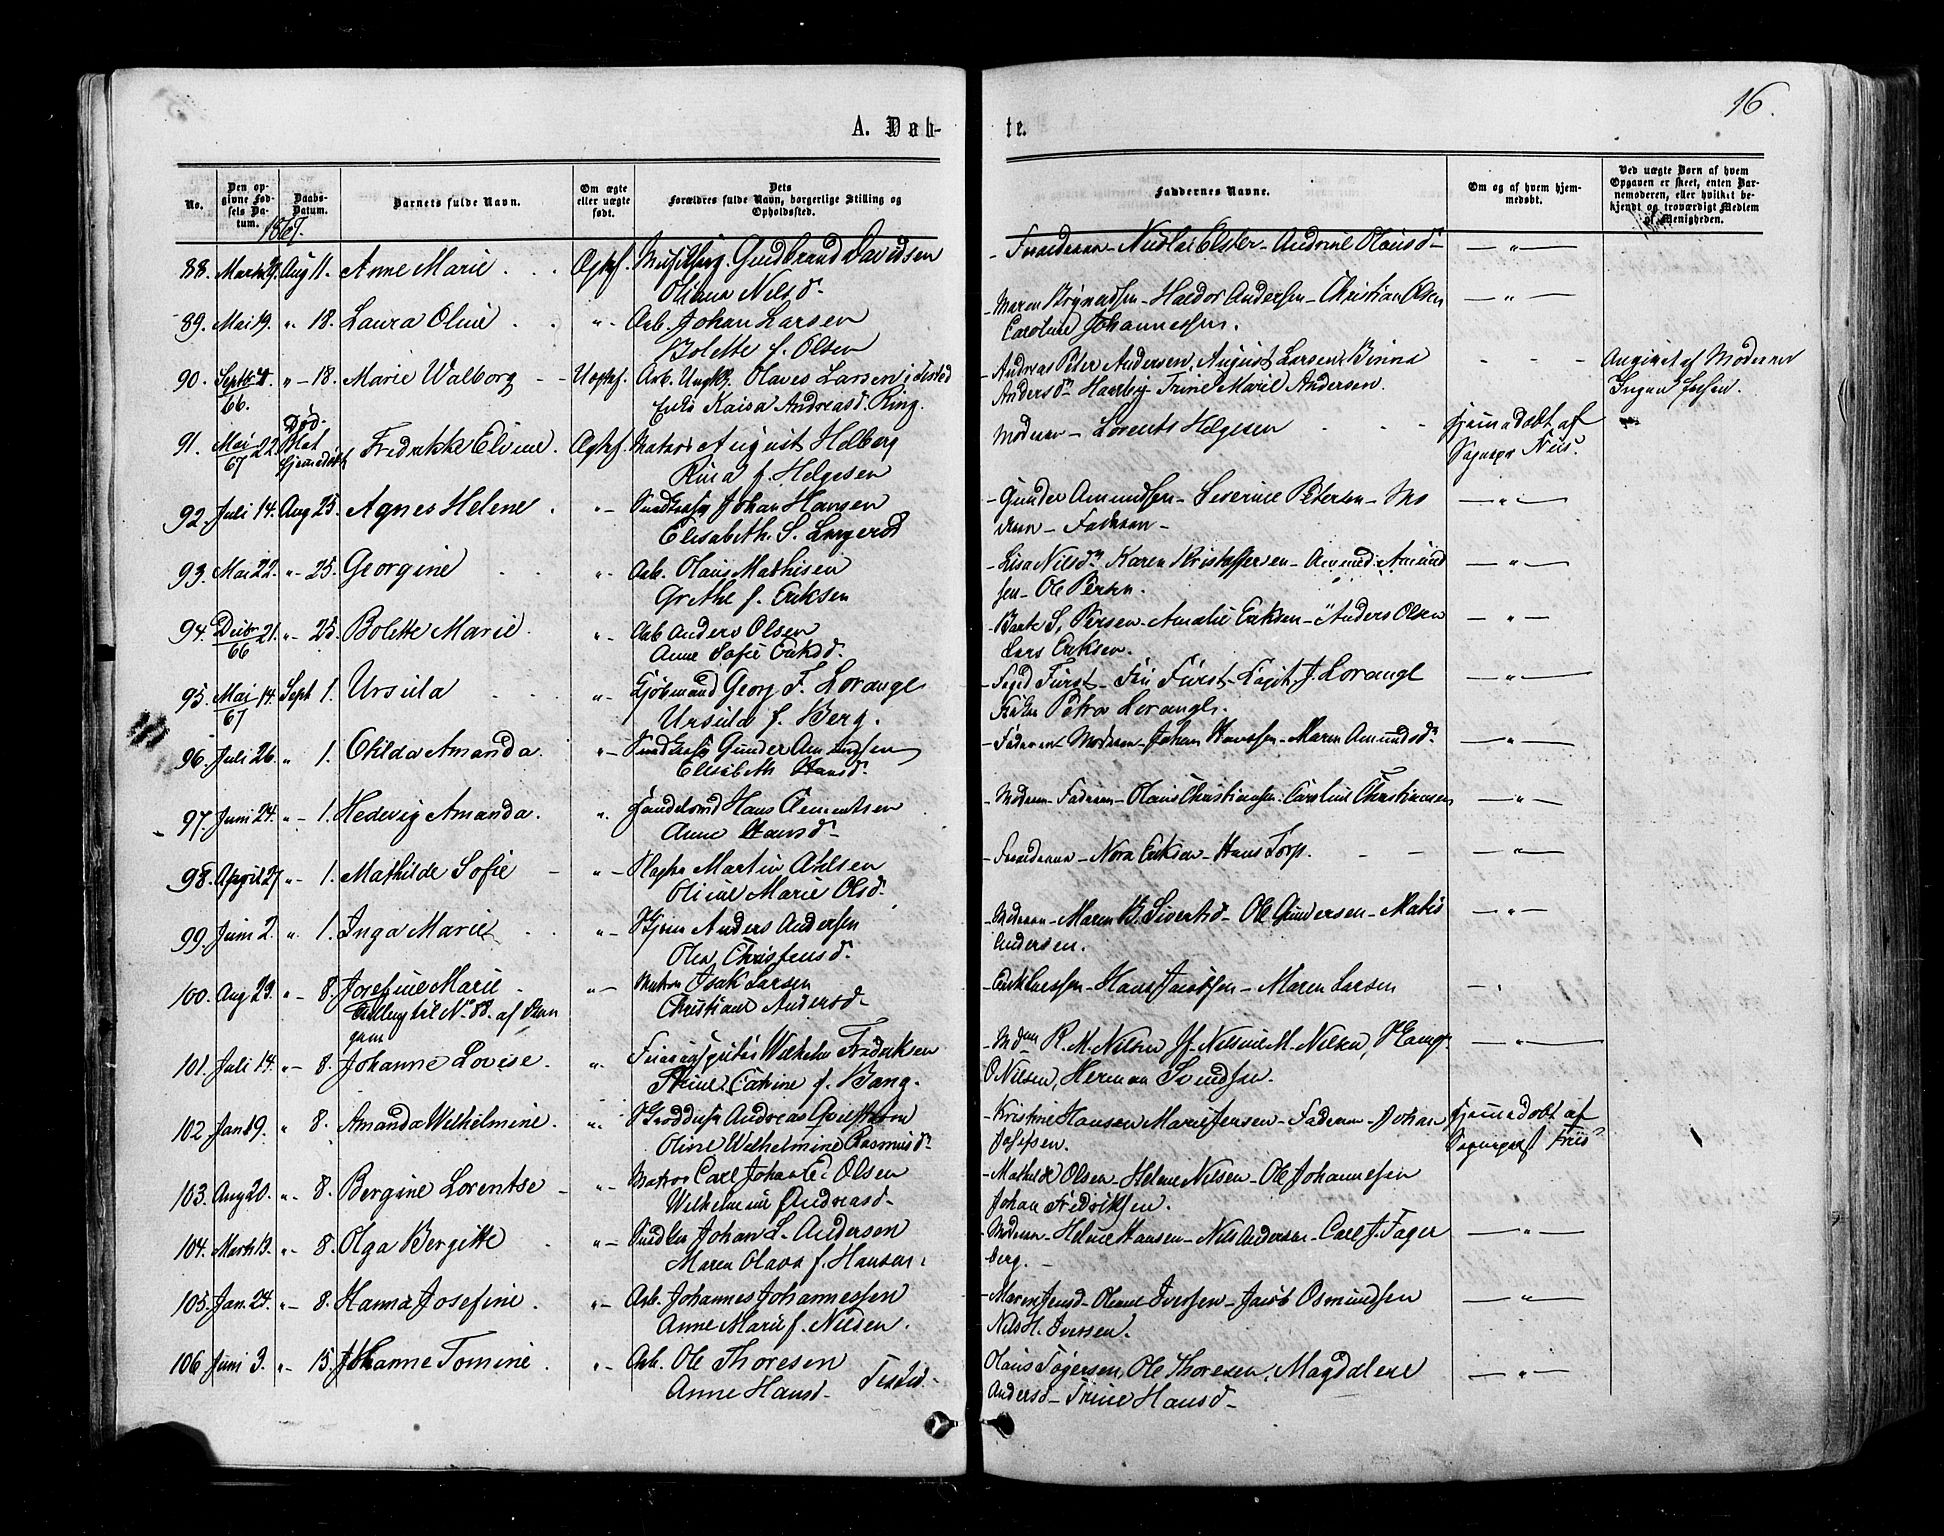 16.
A. Døb-
te.
No.
Den opgivne Fødsels Datum.
Daabs-Datum.
Barnets fulde Navn.
Om ægte eller uægte født.
Dets Forældres fulde Navn, borgerlige Stilling og Opholdssted.
Faddernes Navne.
Om og af hvem hjemmedøbt.
Ved uægte Børn af hvem Opgaven er skeet, enten Barnemoderen, eller hvilket bekjendt og troværdigt Medlem af Menigheden.
1867.
88. Aug 11. Anne Marie . . Gudbrand Davidsen
Oliana Nilsd.
Forældrene – Nicolai Elster – Andrine Olausd – – " –
89. Mai 19. " 18. Laura Oline . . " - Arb. Johan Larsen
Bolette f. Olsen
Haldor Andersen – Christian Olsen – " –
Caroline Johannessen.
90. Septbr 66. " – 18. Marie Walborg – – Uægtef. Arb. Ungk. Olaves Larsen i Tisted
Enke Kaisa Andreasd. Ring.
– Andreas Peter Andersen, August Larsen, Binna - - - Angivet af Moderen
Andersd Haarby Trine Marie Andersen.
Ingen Attest
91. Mai 67 22. Død. Hjemmedøbt Fredrikke Eline. Ægtef. Matros August Helberg
Rina f. Helgesen
Moderen – Lorents Helgesen . - - Hjemmedøbt af
Sognepr Friis.
92. Juli 14. Aug 25. Agnes Helene . " - Johan Hansen
Elisabeth S. Langerød
– Gunder Amundsen – Severine Petersen – Mo – " –
deren – Faderen –
93. Mai 22. " – 25. Georgine . . " - Arb. Olaus Mathisen
Grethe f. Eriksen
– Lisa Nilsd Karen Kristoffersen – Amund Amund – " –
sen – Ole Persen.
94. Decbr 66 21. " – 25. Bolette Marie . " - Arb Anders Olsen
Anne Sofie Eriksd.
Persen – Amalie Eriksen – Anders Olsen – " –
Lars Eriksen.
95. Mai 67 14. Sept 1. Ursula . . . " - Kjøbmand Georg F. Lorange
Ursula f. Berg.
Foged Fürst – Fru Fürst – J. Lorange – " –
Petra Lorange.
96. Juli 26. " 1. Otilda Amanda. " - Gunder Amundsen
Elisabeth Hansd.
– Faderen Moderen – Johan Hanssen – Maren Amundsd. – " –
97. Juni 24. " - 1. Hedevig Amanda. " . Hans Clementsen
Anne Hansd –
– Moderen – Faderen – Olaus Christiansen – Caroline Christiansen – " –
98. April 27 " – 1. Mathilde Sofie – " – Martin Axelsen
Oline Marie Olsd.
– Forældrene – Nora Eriksen – Hans Torp. – – – " –
99. Juni 2. " . 1. Inga Marie . . " – Anders Andersen
Olea Christensd.
– Moderen – Maren B. Sivertsd – Ole Gundersen – Mathis – " –
Andersen.
100. Aug 23. " – 8. Josefine Marie . " – Matros Isak Larsen
Tvilling til No 88. af Daab
gane
Christiane Andersd –
Erik Larssen – Hans Jacobsen – Maren Larsen – .
101. Juli 14. " – 8. Johanne Lovise. " . Wilhelm Fredriksen
Trine Catrine f. Bang.
R. M. Nilsen Nilsine M. Nilsen – " –
O Nilsen, Herman Svendsen.
102. Jan 19. " 8. Amanda Wilhelmine. " . Andreas
Oline Wilhelmine Rasmusd.
– Kristine Hansen Marie Jensen – Faderen – Johan Hjemmedøbt af
Josefsen.
Sognepræst Friis
103. Aug 20. " - 8. Bergine Lorentse – " - Matros Carl Johan E. Olsen
Wilhelmine Andreasd –
– Mathilde Olsen – Helene Nilsen – Ole Johannesen
Johan Fredriksen.
104. Marts 13. " – 8. Olga Bergitte . " – Johan L. Andersen
Maren Olava f. Hansen.
– Moderen – Helene Hansen – Nils Andersen – Carl J. Fager – " –
berg. –
105. Jan. 24. " – 8. Hanna Josefine . " – Arb. Johannes Johannessen
Anne Marie f. Nilsen.
– Maren Jensd – Oleane Iverssen – Jacob Osmundsen – " –
Nils H. Iverssen.
106 Juni 3. " – 15. Johanne Tomine . " – Arb. Ole Thoresen
Anne Hansd – Tisted.
Olaus Tøgersen, Ole Thoresen, Magdalene – " –
Andersd – Trine Hansd –